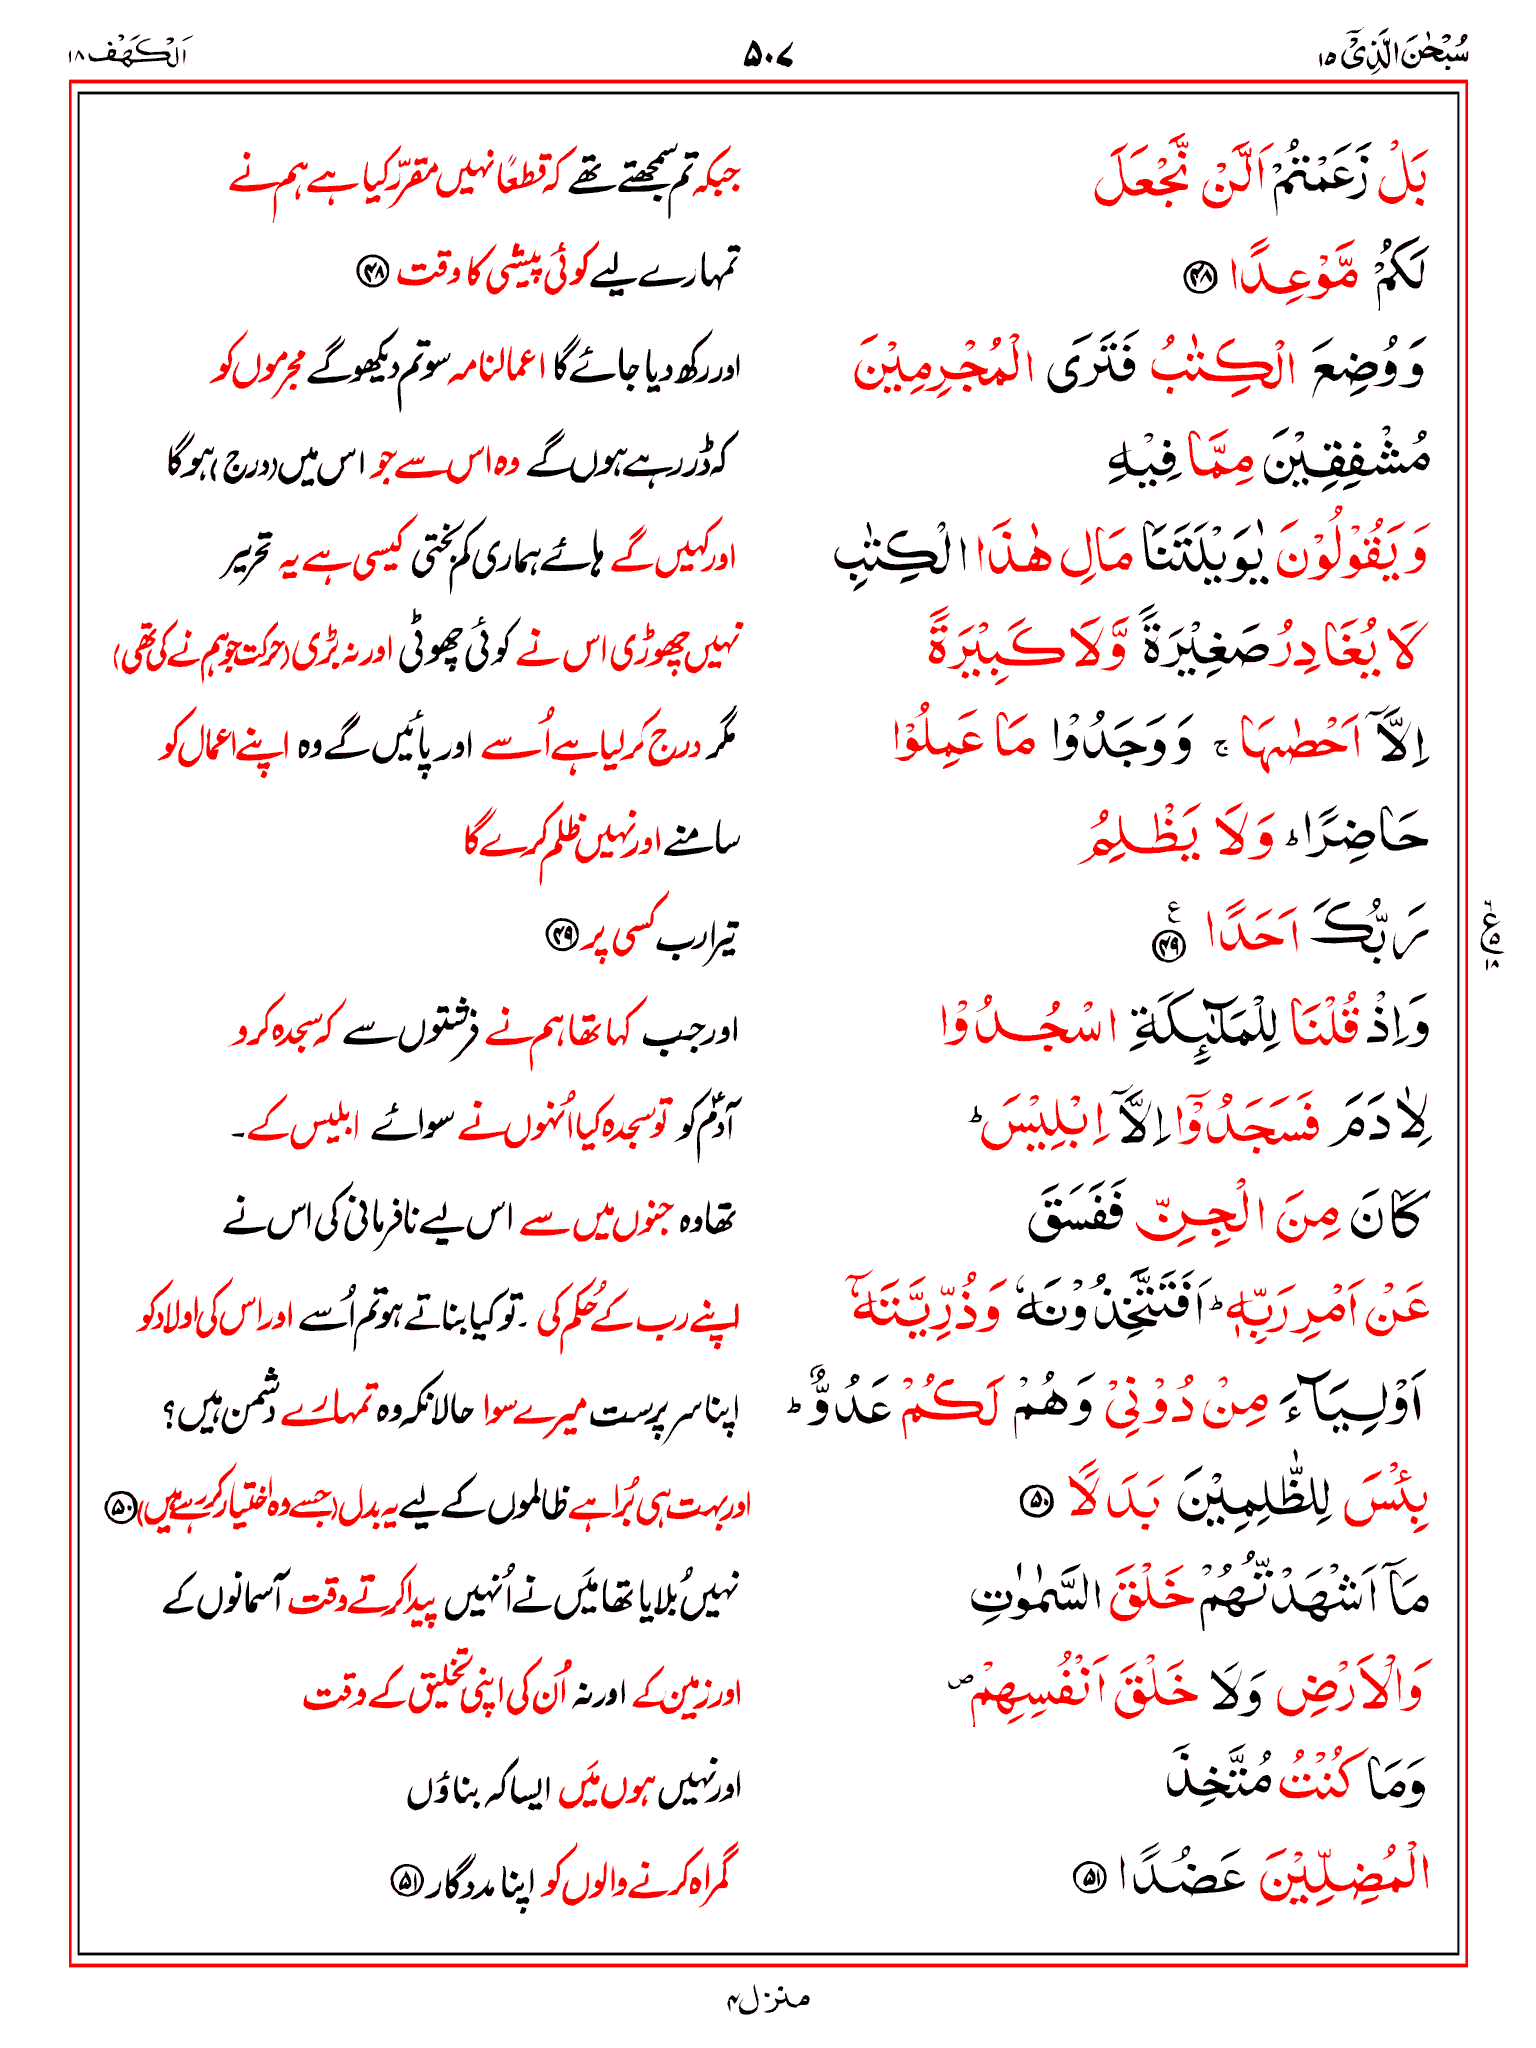 سُبْحٰنَ الَّذِیْۤ ۱۵
۵۰۷
اَلْكَهْف ۱۸
بَلْ زَعَمْتُمْ اَلَّنْ نَّجْعَلَ
جبکہ تم سمجھتے تھے کہ قطعًا نہیں مقرّر کیا ہے ہم نے
لَكُمْ مَّوْعِدًا ۴۸
تمہارے لیے کوئی پیشی کا وقت ۴۸
وَوُضِعَ الْكِتٰبُ فَتَرَى الْمُجْرِمِیْنَ
اور رکھ دیا جائے گا اعمالنامہ سو تم دیکھو گے مجرموں کو
مُشْفِقِیْنَ مِمَّا فِیْهِ
کہ ڈر رہے ہوں گے وہ اس سے جو اس میں (درج) ہوگا
وَیَقُوْلُوْنَ یٰوَیْلَتَنَا مَالِ هٰذَا الْكِتٰبِ
اور کہیں گے ہائے ہماری کم بختی کیسی ہے یہ تحریر
لَا یُغَادِرُ صَغِیْرَةً وَّلَا كَبِیْرَةً
نہیں چھوڑی اس نے کوئی چھوٹی اور نہ بڑی (حرکت جو ہم نے کی تھی)
اِلَّاۤ اَحْصٰىهَا ۚ وَوَجَدُوْا مَا عَمِلُوْا
مگر درج کر لیا ہے اُسے اور پائیں گے وہ اپنے اعمال کو
حَاضِرًا ؕ وَلَا یَظْلِمُ
سامنے اور نہیں ظلم کرے گا
رَبُّكَ اَحَدًا ۴۹ ع
تیرا رب کسی پر ۴۹
ع ۵ ۱۸
وَاِذْ قُلْنَا لِلْمَلٰٓىِٕكَةِ اسْجُدُوْا
اور جب کہا تھا ہم نے فرشتوں سے کہ سجدہ کرو
لِاٰدَمَ فَسَجَدُوْۤا اِلَّاۤ اِبْلِیْسَ ؕ
آدمؑ کو تو سجدہ کیا اُنہوں نے سوائے ابلیس کے۔
كَانَ مِنَ الْجِنِّ فَفَسَقَ
تھا وہ جنوں میں سے اس لیے نافرمانی کی اس نے
عَنْ اَمْرِ رَبِّهٖ ؕ اَفَتَتَّخِذُوْنَهٗ وَذُرِّیَّتَهٗۤ
اپنے رب کے حُکم کی۔ تو کیا بناتے ہو تم اُسے اور اس کی اولاد کو
اَوْلِیَآءَ مِنْ دُوْنِیْ وَهُمْ لَكُمْ عَدُوٌّ ؕ
اپنا سرپرست میرے سوا حالانکہ وہ تمہارے دشمن ہیں؟
بِئْسَ لِلظّٰلِمِیْنَ بَدَلًا ۵۰
اور بہت ہی بُرا ہے ظالموں کے لیے یہ بدل (جسے وہ اختیار کر رہے ہیں) ۵۰
مَاۤ اَشْهَدْتُّهُمْ خَلْقَ السَّمٰوٰتِ
نہیں بُلایا تھا مَیں نے اُنہیں پیدا کرتے وقت آسمانوں کے
وَالْاَرْضِ وَلَا خَلْقَ اَنْفُسِهِمْ ۪
اور زمین کے اور نہ اُن کی اپنی تخلیق کے وقت
وَمَا كُنْتُ مُتَّخِذَ
اور نہیں ہوں مَیں ایسا کہ بناؤں
الْمُضِلِّیْنَ عَضُدًا ۵۱
گمراہ کرنے والوں کو اپنا مددگار ۵۱
منزل ۴